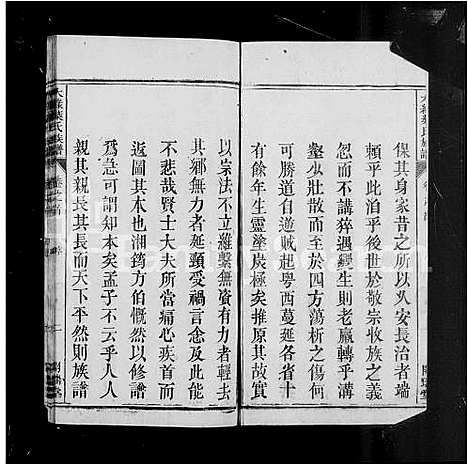 保其身家昔之所以久安長治者端
賴乎此自承平後世於敬宗收族之義
忽而不講猝遇變生則老羸轉乎溝
壑少壯散而至於四方蕩析之傷何
可勝道自逆賊起粵西蔓延各省十
有餘年生靈塗炭極矣推原其故實
大義葉氏族譜
卷之首
以宗法不立維繫無資有力者輕去
其鄉無力者延頸受禍言念及此能
不悲哉賢士大夫所當痛心疾首而
返圖其本也湘籌方伯慨然以修譜
為急可謂知本矣孟子不云乎人人
親其親長其長而天下平然則族譜